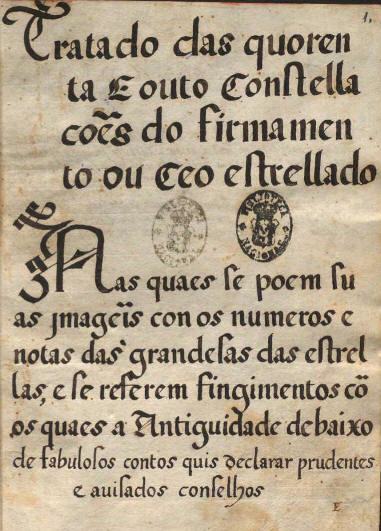 1.
Tratado das quoren
ta E outo Constella
coẽs do firmamen
to ou Ceo estrellado
Nas quaes se poem su
as jmagẽis con os numeros e
notas das grandesas das estrel
las, e se referem fingimentos cõ
os quaes a Antiguidade debaixo
de fabulosos contos quis declarar prudentes
e auisados conselhos
E